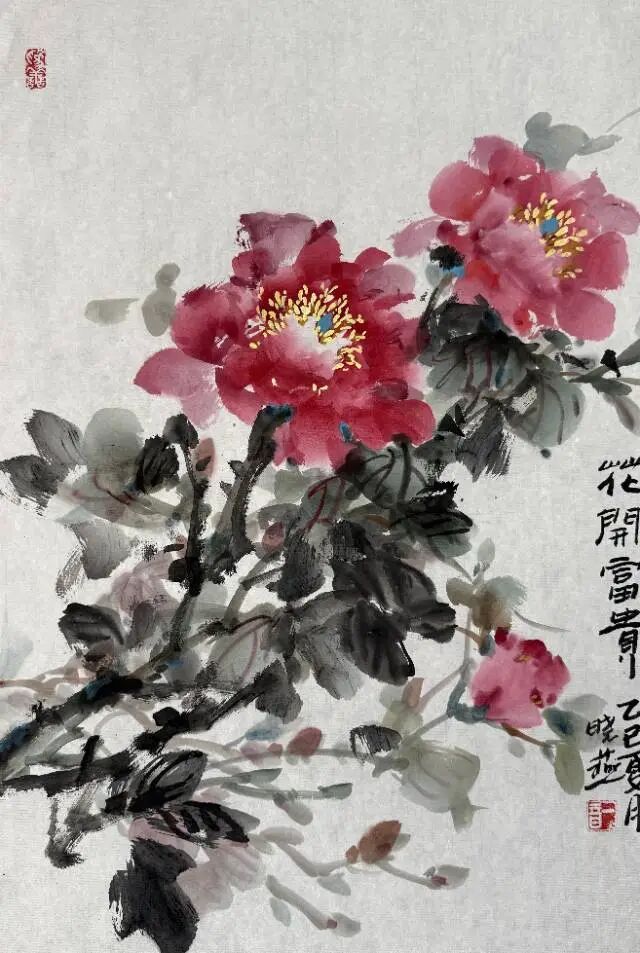 花開富貴
乙巳夏月
晓燕